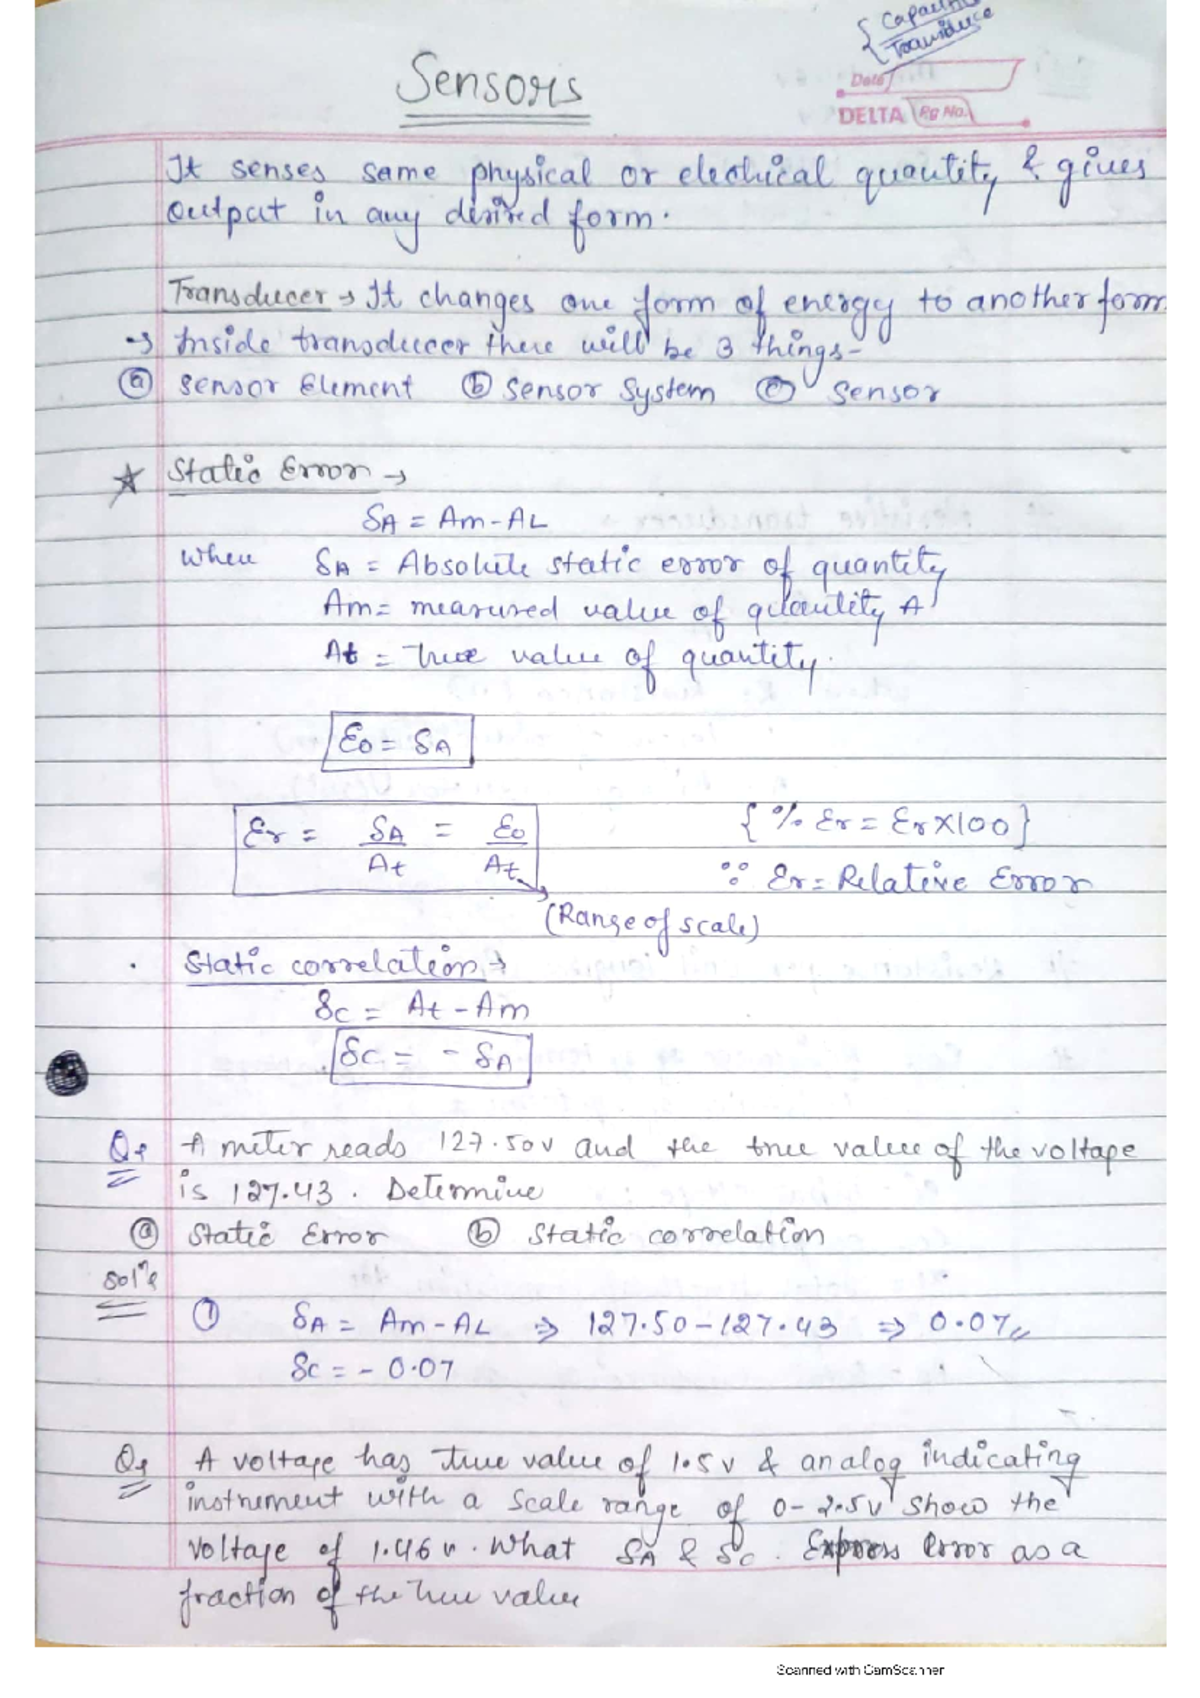 { Capacitive
Transduce
Sensors
Date
DELTA Pg No.
It senses same physical or electrical quantity & gives
output in any desired form.
Transducer → It changes one form of energy to another form.
→ Inside transducer there will be 3 things-
(a) Sensor Element (b) Sensor System (c) Sensor
☆ Static Error →
δA = Am - AL
when δA = Absolute static error of quantity
Am = measured value of quantity A
At = True value of quantity.
ε0 = δA
εr = δA/At = ε0/At { % εr = εr × 100 }
∵ εr = Relative Error
(Range of scale)
. Static correlation →
δC = At - Am
δC = - δA
Q. A meter reads 127.50v and the true value of the voltage
is 127.43. Determine
(a) Static Error (b) Static correlation
Solⁿ.
(1) δA = Am - AL ⇒ 127.50 - 127.43 ⇒ 0.07
δC = - 0.07
Q. A voltage has true value of 1.5v & analog indicating
instrument with a scale range of 0 - 2.5v show the
voltage of 1.46v. What δA & δC. Express error as a
fraction of the true value
Scanned with CamScanner